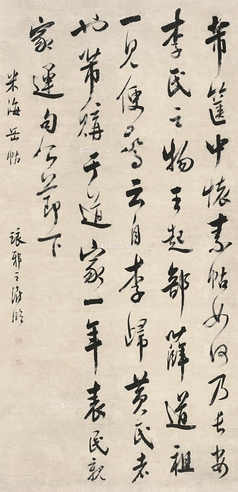 常篋中懷素帖如何乃長安
李氏之物王起部薛道祖
一見便驚云自李歸黃氏者
也常購于道家一年表民親
家運句公節下
米海岳帖
琅邪王